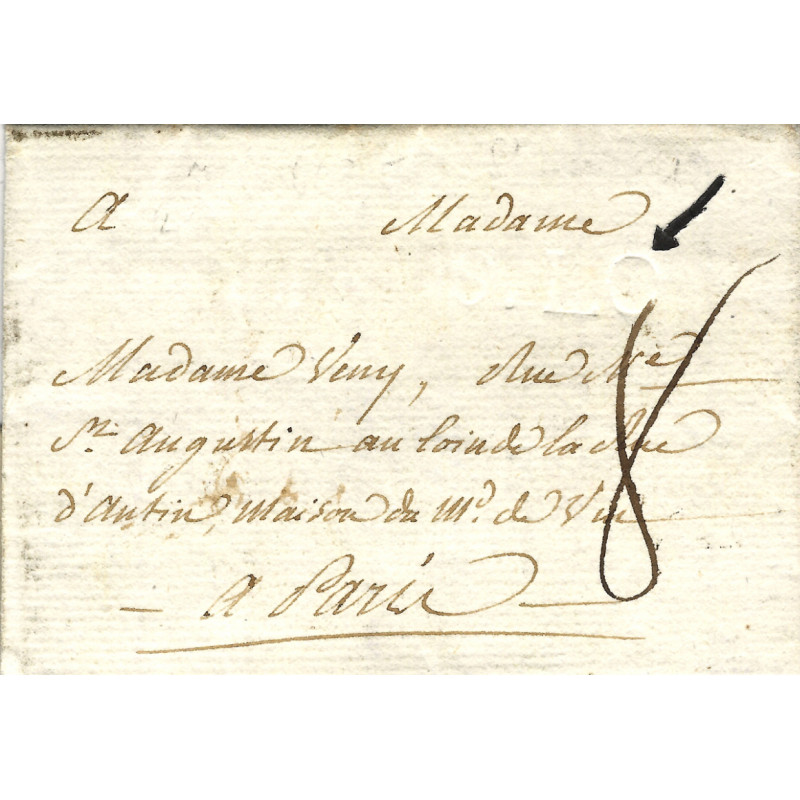 A Madame
Madame Veny, Rue Nve
St. Augustin au Coin de la Rue
d'Antin, Maison du Md. de Vin
- a Paris -
8